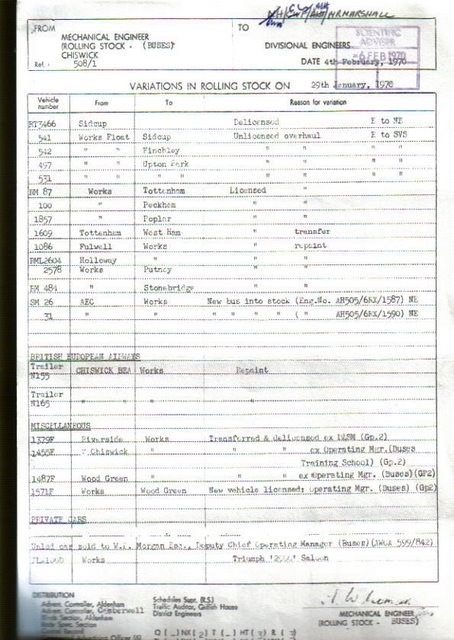 FROM
MECHANICAL ENGINEER
(ROLLING STOCK - (BUSES)
CHISWICK
Ref. : 508/1
TO
MARSHALL
DIVISIONAL ENGINEERS
SCIENTIFIC
ADVISER
-6 FEB 1970
DATE 4th February, 1970
VARIATIONS IN ROLLING STOCK ON 29th January, 1970
Vehicle number From To Reason for variation
RT3466 Sidcup Delicensed E to NE
541 Works Float Sidcup Unlicensed overhaul E to SVS
542 " " Finchley " " " "
497 " " Upton Park " " " "
531 " " " " " " " "
RM 87 Works Tottenham Licensed "
100 " Peckham " "
1857 " Poplar " "
1609 Tottenham West Ham " transfer
1086 Fulwell Works " repaint
RML2604 Holloway " " "
2578 Works Putney " "
RM 484 " Stonebridge " "
SM 26 AEC Works New bus into stock (Eng.No. AH505/6EX/1587) NE
31 " " " " " " ( " AH505/6EX/1590) NE
BRITISH EUROPEAN AIRWAYS
Trailer
N155 CHISWICK BEA Works Repaint
Trailer
N165 " " " "
MISCELLANEOUS
1379F Riverside Works Transferred & delicensed ex (Gp.2)
1455F Chiswick " " " ex Operating Mgr.(Buses
Training School) (Gp.2)
1487F Wood Green " " " ex Operating Mgr. (Buses) (GP2)
1571F Works Wood Green New vehicle licensed: Operating Mgr. (Buses) (Gp2)
PRIVATE CARS
sold to Morgan Esq., Deputy Chief Operating Manager (Buses)
Works Triumph Saloon
DISTRIBUTION
Advert. Controller, Aldenham
Advert. Controller, Camberwell
Schedules Supt. (R.S.)
Traffic Auditor, Griffith House
District Engineers
MECHANICAL ENGINEER
(ROLLING STOCK - BUSES)